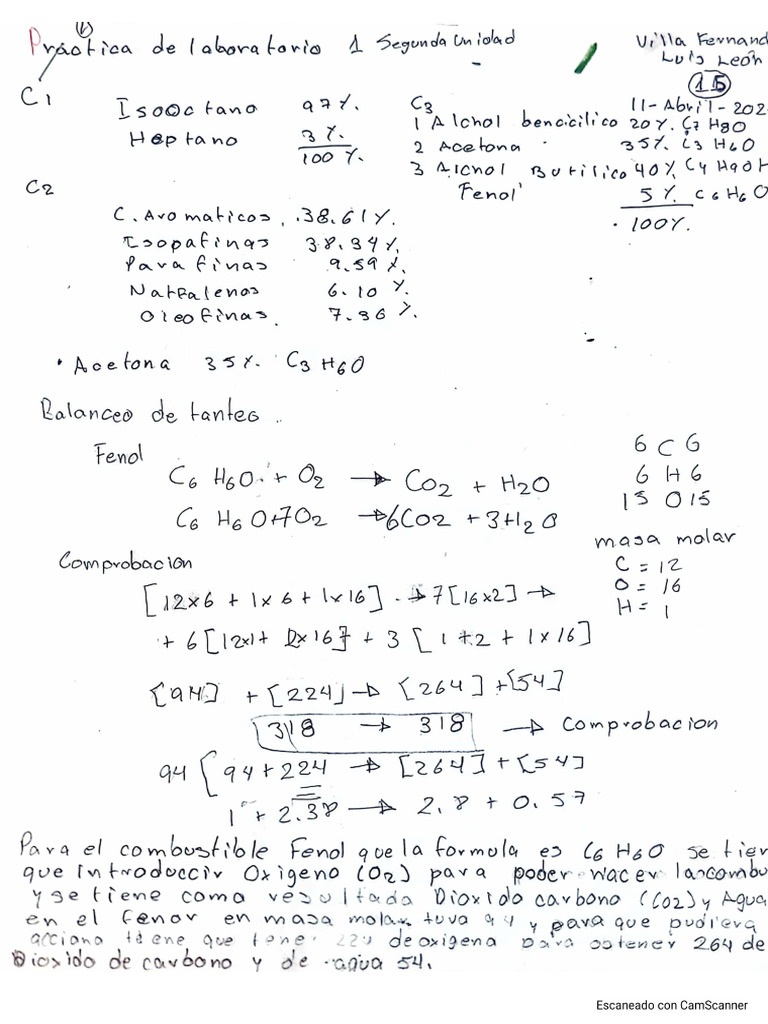 Práctica de laboratorio 1 Segunda Unidad
Villa Fernand
Luis León
15
11-Abril-202
C1
Isooctano 97%.
Heptano 3%.
100%.
C3
1 Alchol bencicilico 20%. C7 H8O
2 Acetona 35%. C3 H6O
3 Alcnol Butilico 40% C4 H9OH
Fenol 5%. C6H6O
100%.
C2
C. Aromaticos. 38.61%.
Isopafinas 38.34%.
Parafinas 9.59%.
Natfalenos 6.10%.
Oleofinas. 7.36%.
• Acetona 35%. C3 H6O
Balanceo de tanteo..
Fenol
C6 H6O + O2 → CO2 + H2O
C6 H6O+7O2 → 6CO2 + 3H2O
6 C 6
6 H 6
15 O 15
masa molar
C = 12
O = 16
H = 1
Comprobacion
[12x6 + 1x6 + 1x16] → 7[16x2] →
+ 6[12x1+ 2x16] + 3 [1+2 + 1x16]
[94] + [224] → [264] + [54]
318 → 318 → Comprobacion
94 [94+224 → [264] + [54]
1 + 2.38 → 2.8 + 0.57
Para el combustible Fenol que la formula es C6 H6O se tier
que introduccir Oxigeno (O2) para poder hacer la combu
y se tiene como resultada Dioxido carbono (CO2) y Agua
en el fenor en masa molar tuvo 94 y para que pudiera
acciona tiene que tener 224 de oxigena para obtener 264 de
Dioxido de carbono y de agua 54.
Escaneado con CamScanner